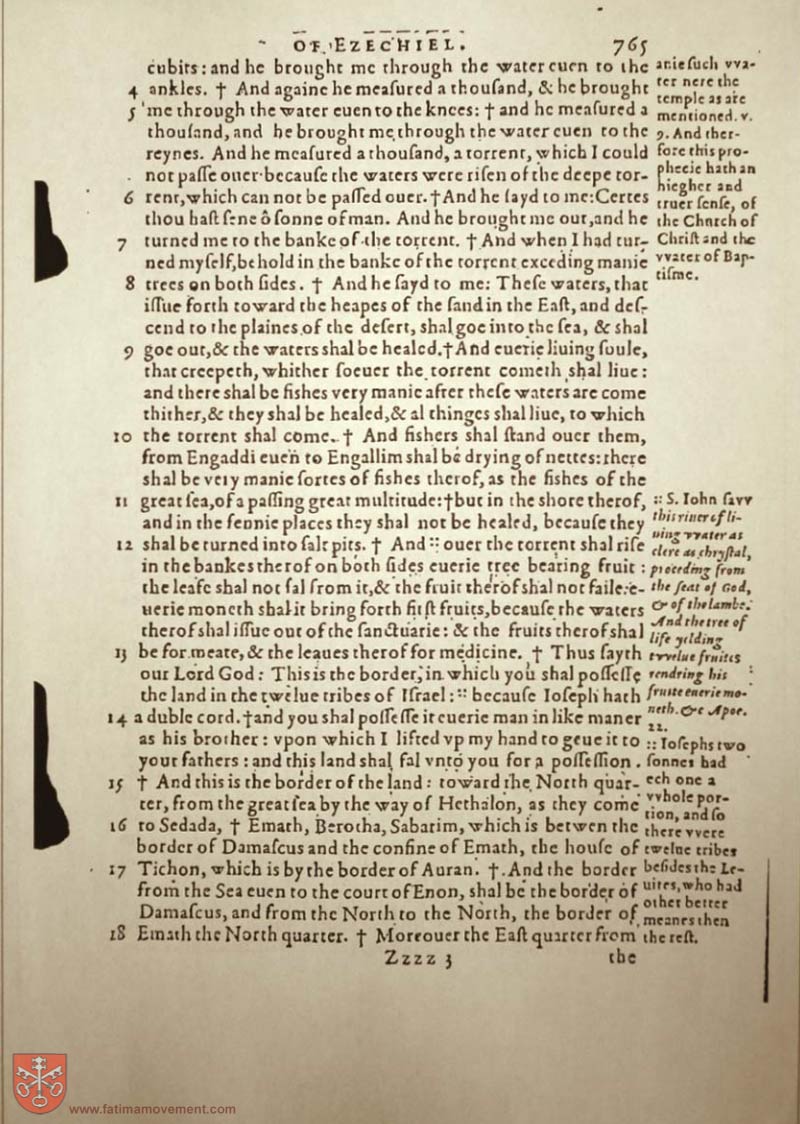 OF EZECHIEL. 765
cubits: and he brought me through the water euen to the
4 ankles. † And againe he meaſured a thouſand, & he brought
5 me through the water euen to the knees: † and he meaſured a
thouſand, and he brought me through the water euen to the
reynes. And he meaſured a thouſand, a torrent, which I could
not paſſe ouer: becauſe the waters were riſen of the deepe tor-
6 rent, which can not be paſſed ouer. † And he ſayd to me: Certes
thou haſt ſene ô ſonne of man. And he brought me out, and he
7 turned me to the banke of the torrent. † And when I had tur-
ned myſelf, behold in the banke of the torrent exceding manie
8 trees on both ſides. † And he ſayd to me: Theſe waters, that
iſſue forth toward the heapes of the ſand in the Eaſt, and deſ-
cend to the plaines of the deſert, shal goe into the ſea, & shal
9 goe out, & the waters shal be healed. † And euerie liuing ſoule,
that creepeth, whither ſoeuer the torrent cometh shal liue:
and there shal be fishes very manie after theſe waters are come
thither, & they shal be healed, & al thinges shal liue, to which
10 the torrent shal come. † And fishers shal ſtand ouer them,
from Engaddi euen to Engallim shal be drying of nettes: there
shal be very manie ſortes of fishes therof, as the fishes of the
11 great ſea, of a paſſing great multitude: † but in the shore therof,
and in the fennie places they shal not be healed, becauſe they
12 shal be turned into ſalt pits. † And :: ouer the torrent shal riſe
in the bankes therof on both ſides euerie tree bearing fruit:
the leafe shal not fal from it, & the fruit therof shal not faile: e-
uerie moneth shal it bring forth firſt fruits, becauſe the waters
therof shal iſſue out of the ſanctuarie: & the fruits therof shal
13 be for meate, & the leaues therof for medicine. † Thus ſayth
our Lord God: This is the border, in which you shal poſſeſſe
the land in the twelue tribes of Iſrael: :: becauſe Ioſeph hath
14 a duble cord. † and you shal poſſeſſe it euerie man in like maner
as his brother: vpon which I lifted vp my hand to geue it to
your fathers: and this land shal fal vnto you for a poſſeſſion.
15 † And this is the border of the land: toward the North quar-
ter, from the great ſea by the way of Hethalon, as they come
16 to Sedada, † Emath, Berotha, Sabarim, which is betwen the
border of Damaſcus and the confine of Emath, the houſe of
17 Tichon, which is by the border of Auran. † And the border
from the Sea euen to the court of Enon, shal be the border of
Damaſcus, and from the North to the North, the border of
18 Emath the North quarter. † Moreouer the Eaſt quarter from
Zzzz 3 the
arie ſuch vva-
ter nere the
temple as are
mentioned. v.
9. And ther-
fore this pro-
phecie hath an
hiegher and
truer ſenſe, of
the Church of
Chriſt and the
vvater of Bap-
tiſme.
:: S. Iohn ſavv
this riuer of li-
uing vvater as
clere as chryſtal,
proceding from
the ſeat of God,
& of the lambe.
And the tree of
life yelding
tvvelue fruites
rendring his
fruite euerie mo-
neth. &c Apoc.
22.
:: Ioſephs two
ſonnes had
ech one a
vvhole por-
tion, and ſo
there vvere
twelue tribes
beſides the Le-
uites, who had
other better
meanes then
the reſt.
www.fatimamovement.com